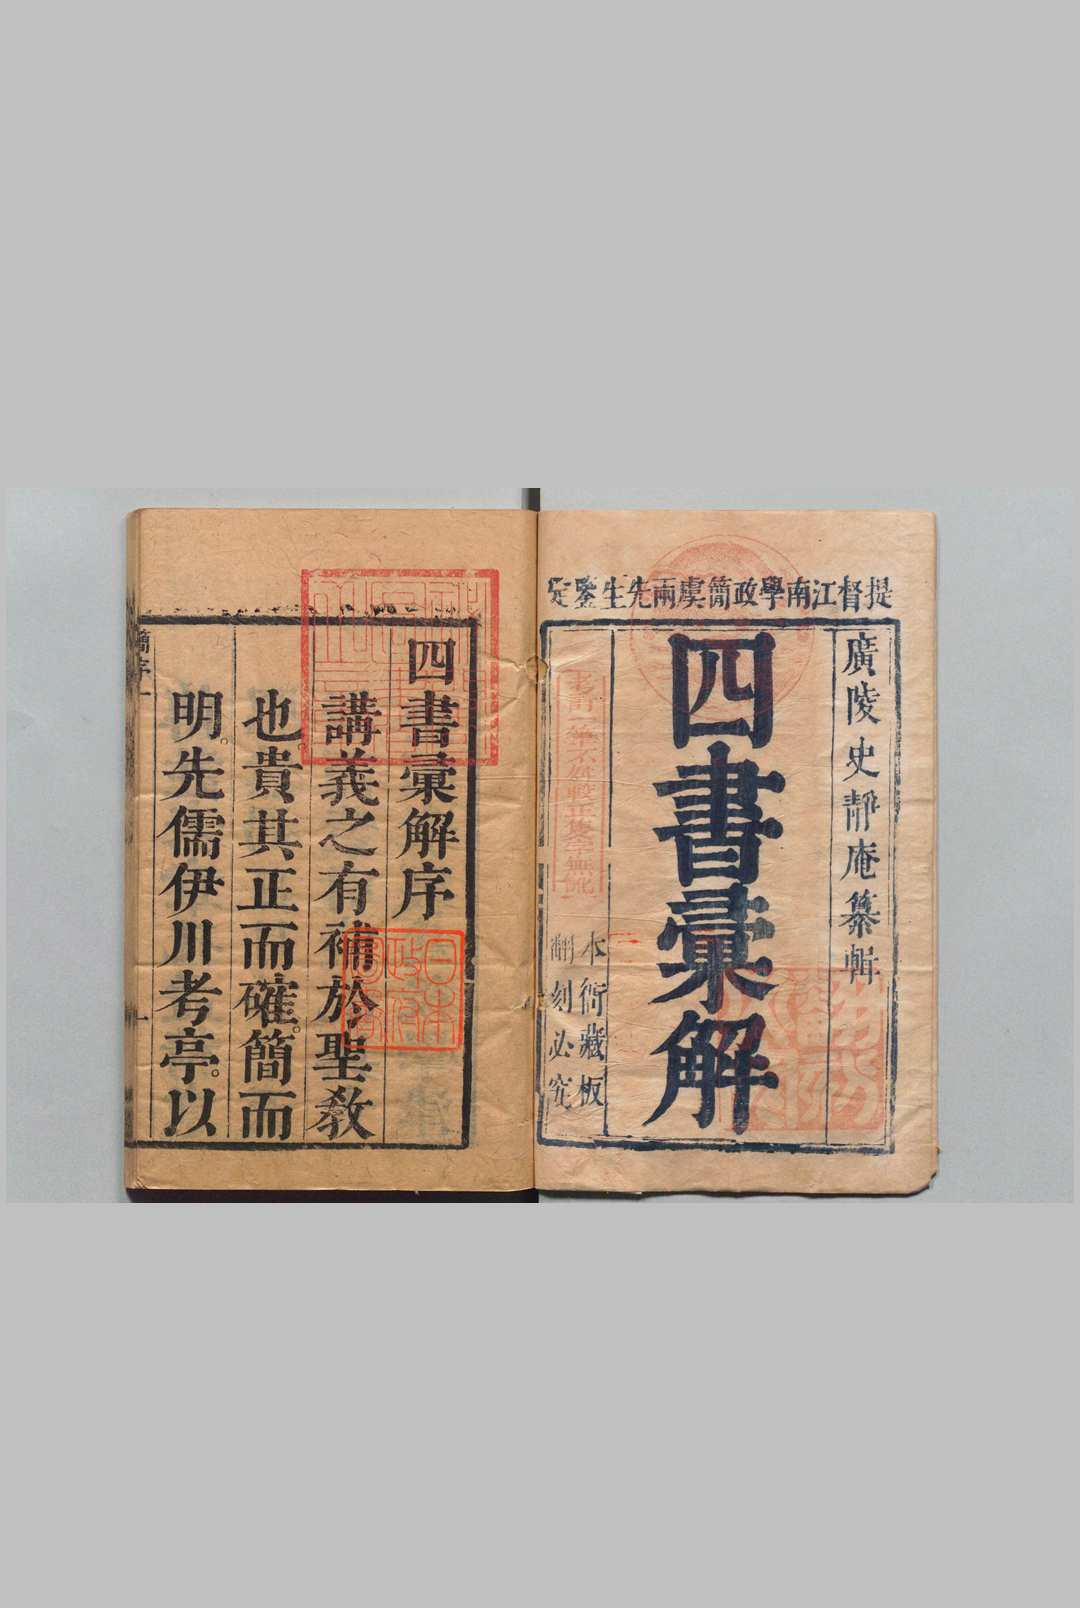 提督江南學政簡虞兩先生鑒定
廣陵史靜庵纂輯
四書彙解
本衙藏板
翻刻必究
四書彙解序
講義之有補於聖教
也。貴其正而確。簡而
明。先儒伊川考亭。以
簡序
一